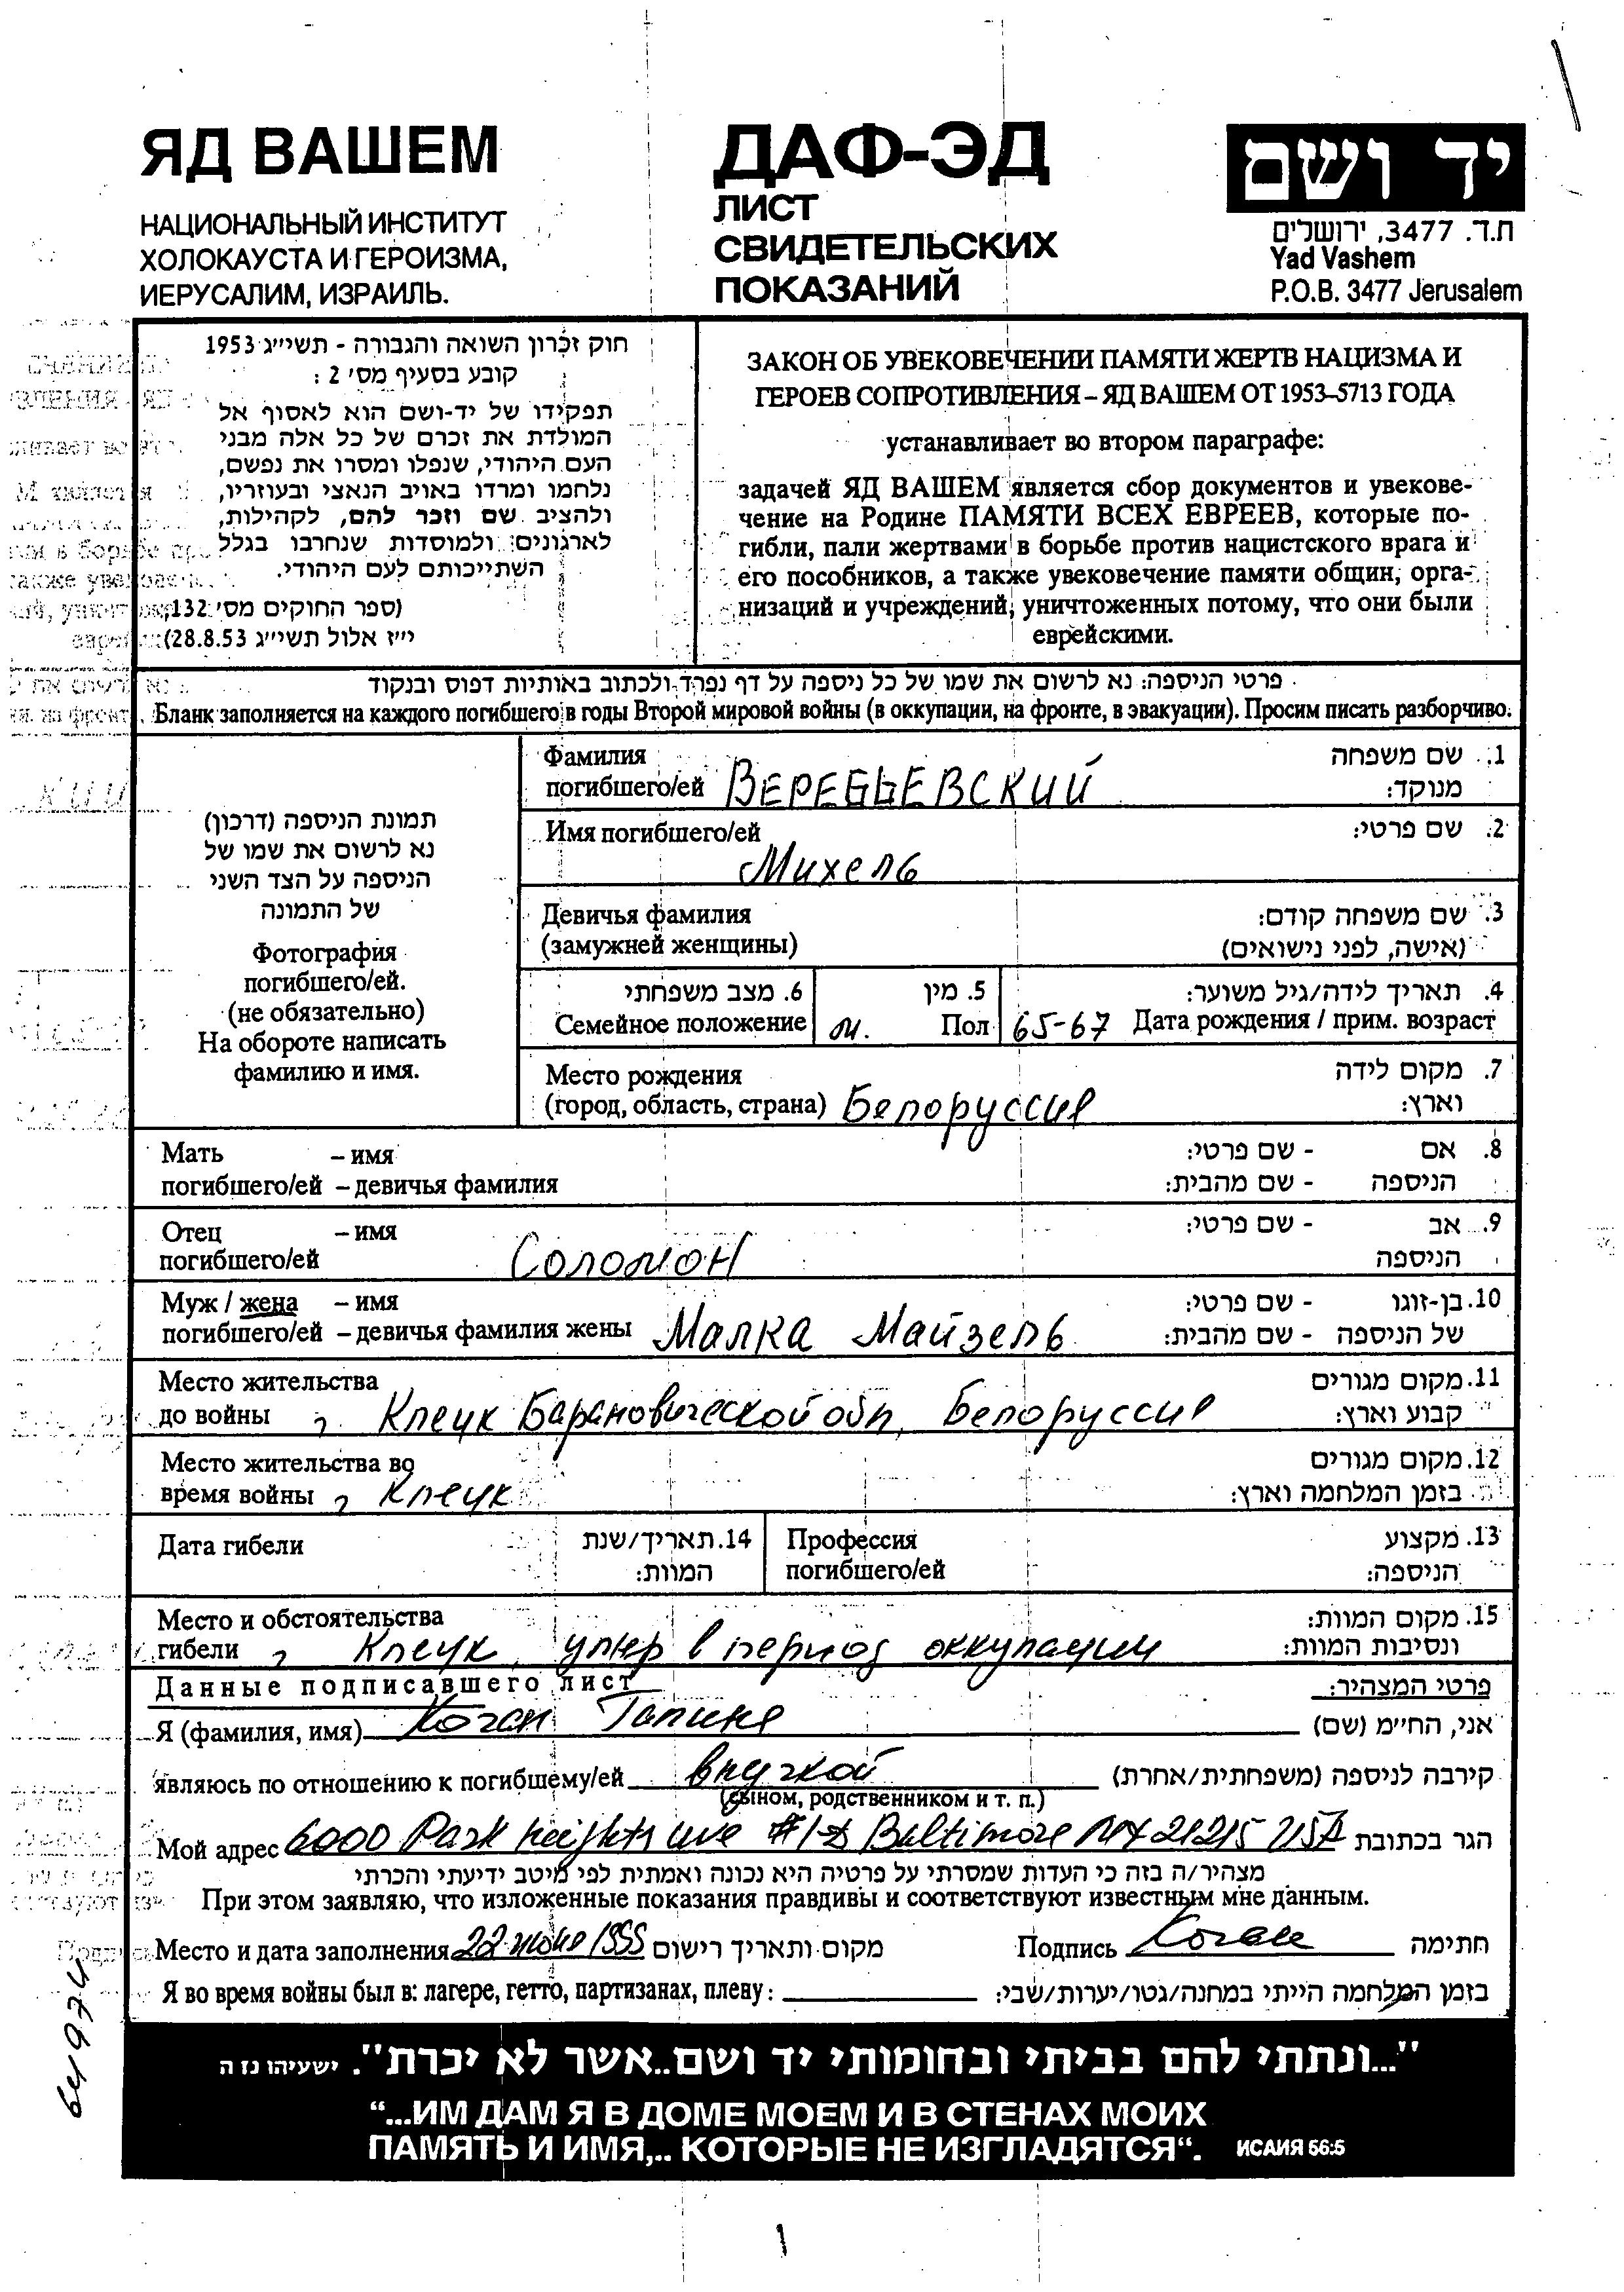 ЯД ВАШЕМ
НАЦИОНАЛЬНЫЙ ИНСТИТУТ
ХОЛОКАУСТА И ГЕРОИЗМА,
ИЕРУСАЛИМ, ИЗРАИЛЬ.
ДАФ-ЭД
ЛИСТ
СВИДЕТЕЛЬСКИХ
ПОКАЗАНИЙ
יד ושם
ת.ד. 3477, ירושלים
Yad Vashem
P.O.B. 3477 Jerusalem
חוק זכרון השואה והגבורה - תשי״ג 1953
קובע בסעיף מס׳ 2 :
תפקידו של יד-ושם הוא לאסוף אל
המולדת את זכרם של כל אלה מבני
העם היהודי, שנפלו ומסרו את נפשם,
נלחמו ומרדו באויב הנאצי ובעוזריו,
ולהציב שם וזכר להם, לקהילות,
לארגונים ולמוסדות שנחרבו בגלל
השתייכותם לעם היהודי.
(ספר החוקים מס׳ 132,
י״ז אלול תשי״ג 28.8.53)
ЗАКОН ОБ УВЕКОВЕЧЕНИИ ПАМЯТИ ЖЕРТВ НАЦИЗМА И
ГЕРОЕВ СОПРОТИВЛЕНИЯ – ЯД ВАШЕМ ОТ 1953–5713 ГОДА
устанавливает во втором параграфе:
задачей ЯД ВАШЕМ является сбор документов и увекове-
чение на Родине ПАМЯТИ ВСЕХ ЕВРЕЕВ, которые по-
гибли, пали жертвами в борьбе против нацистского врага и
его пособников, а также увековечение памяти общин, орга-
низаций и учреждений, уничтоженных потому, что они были
еврейскими.
פרטי הניספה: נא לרשום את שמו של כל ניספה על דף נפרד ולכתוב באותיות דפוס ובנקוד
Бланк заполняется на каждого погибшего в годы Второй мировой войны (в оккупации, на фронте, в эвакуации). Просим писать разборчиво.
תמונת הניספה (דרכון)
נא לרשום את שמו של
הניספה על הצד השני
של התמונה
Фотография
погибшего/ей.
(не обязательно)
На обороте написать
фамилию и имя.
Фамилия 1. שם משפחה
погибшего/ей ВЕРЕББЕВСКИЙ מנוקד:
Имя погибшего/ей 2. שם פרטי:
Михель
Девичья фамилия 3. שם משפחה קודם:
(замужней женщины) (אישה, לפני נישואים)
6. מצב משפחתי 5. מין 4. תאריך לידה/גיל משוער:
Семейное положение м. Пол 65-67 Дата рождения / прим. возраст
Место рождения 7. מקום לידה
(город, область, страна) Белоруссия וארץ:
Мать – имя 8. אם - שם פרטי:
погибшего/ей – девичья фамилия הניספה - שם מהבית:
Отец – имя 9. אב - שם פרטי:
погибшего/ей Соломон הניספה
Муж / жена – имя 10. בן-זוגו - שם פרטי:
погибшего/ей – девичья фамилия жены Малка Майзель של הניספה - שם מהבית:
Место жительства 11. מקום מגורים
до войны г. Клецк Барановической обл, Белоруссия קבוע וארץ:
Место жительства во 12. מקום מגורים
время войны г. Клецк בזמן המלחמה וארץ:
Дата гибели 14. תאריך/שנת המוות:
Профессия погибшего/ей 13. מקצוע הניספה:
Место и обстоятельства 15. מקום המוות:
гибели г. Клецк, умер в период оккупации ונסיבות המוות:
Данные подписавшего лист פרטי המצהיר:
Я (фамилия, имя) Коган Галина אני, החי״מ (שם)
являюсь по отношению к погибшему/ей внучкой קירבה לניספה (משפחתית/אחרת)
(сыном, родственником и т. п.)
Мой адрес 6000 Park heights ave #1-D Baltimore MD 21215 USA הגר בכתובת
מצהיר/ה בזה כי העדות שמסרתי על פרטיה היא נכונה ואמתית לפי מיטב ידיעתי והכרתי
При этом заявляю, что изложенные показания правдивы и соответствуют известным мне данным.
Место и дата заполнения 22 июня 1995 מקום ותאריך רישום Подпись Коган חתימה
Я во время войны был в: лагере, гетто, партизанах, плену: בזמן המלחמה הייתי במחנה/גטו/יערות/שבי:
64974
"...ונתתי להם בביתי ובחומותי יד ושם..אשר לא יכרת". ישעיהו נז ה
“...ИМ ДАМ Я В ДОМЕ МОЕМ И В СТЕНАХ МОИХ
ПАМЯТЬ И ИМЯ,.. КОТОРЫЕ НЕ ИЗГЛАДЯТСЯ“. ИСАИЯ 56:5
1